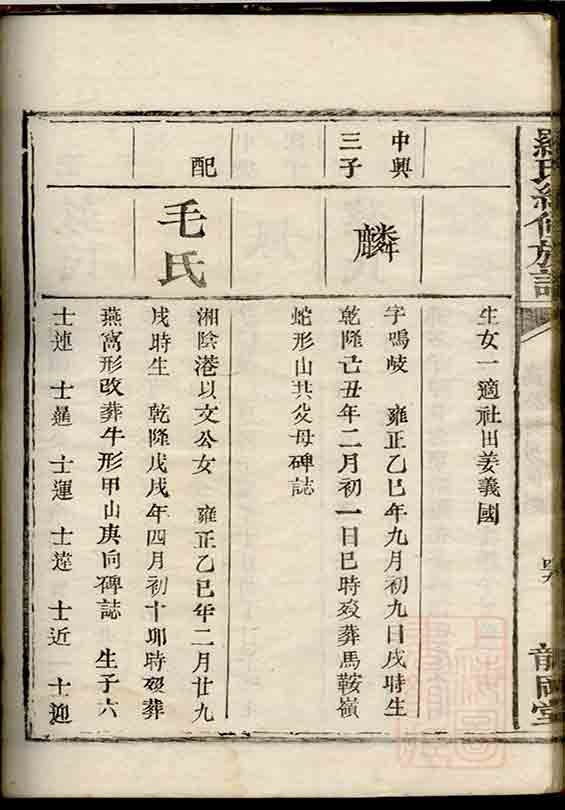 羅氏續修族譜
龍岡堂
生女一適社田姜義國
中興
三子
麟
字鳴岐 雍正乙巳年九月初九日戌時生
乾隆己丑年二月初一日巳時歿葬馬鞍嶺
蛇形山共父母碑誌
配
毛氏
湘陰港以文公女 雍正乙巳年二月廿九
戌時生 乾隆戊戌年四月初十卯時歿葬
燕窩形改葬牛形甲山庚向碑誌 生子六
士連 士暹 士運 士達 士近 士迎